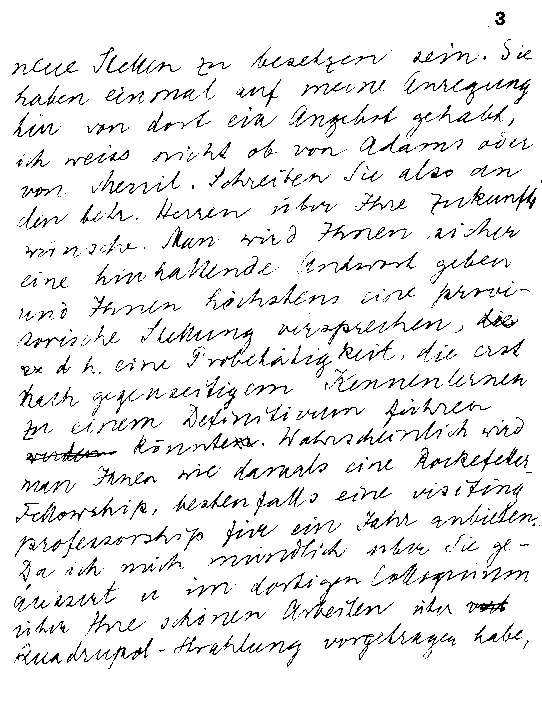 3
neue Stellen zu besetzen sein. Sie
haben einmal auf meine Anregung
hin von dort ein Angebot gehabt,
ich weiss nicht ob von Adams oder
von Merril. Schreiben Sie also an
den betr. Herren über Ihre Zukunfts
wünsche. Man wird Ihnen sicher
eine hinhaltende Antwort geben
und Ihnen höchstens eine provi-
sorische Stellung versprechen, die
d h. eine Probetätigkeit, die erst
nach gegenseitigem Kennenlernen
zu einem Definitivum führen
werden könnten. Wahrscheinlich wird
man Ihnen wie damals eine Rockefeller
Fellowship, bestenfalls eine visiting
professorship für ein Jahr anbieten.
Da ich mich mündlich über Sie ge-
äussert u im dortigen Colloquium
über Ihre schönen Arbeiten über
Quadrupol-Strahlung vorgetragen habe,